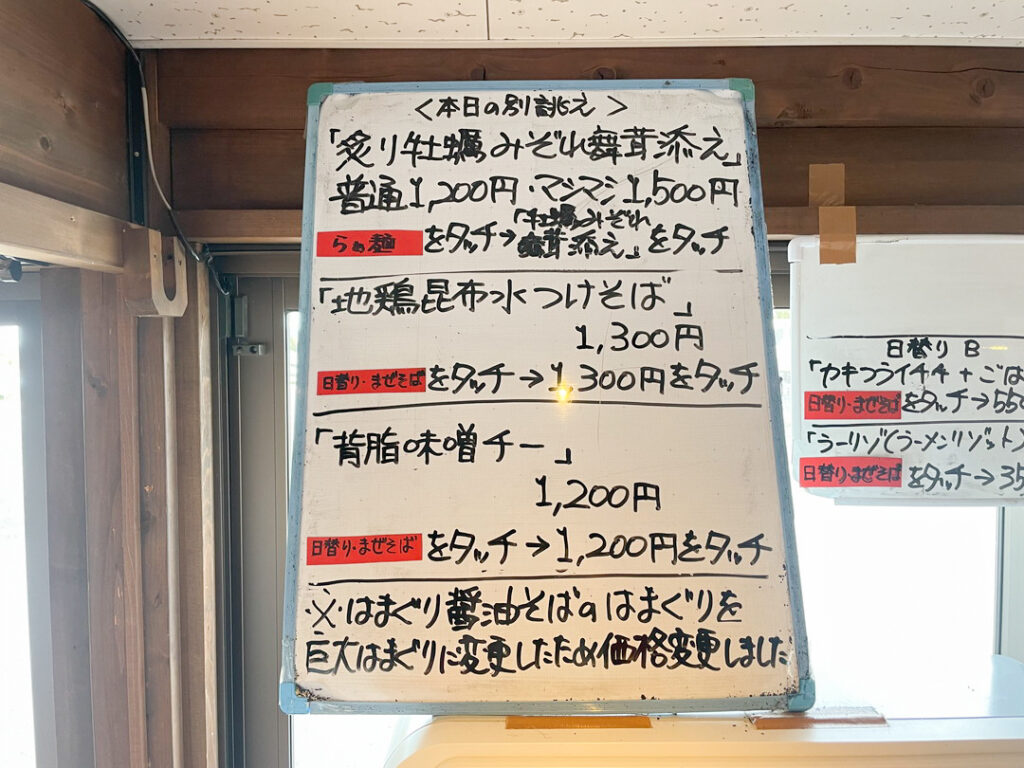 ＜本日の別誂え＞
「炙り牡蠣みぞれ舞茸添え」
普通1,200円・マシマシ1,500円
らぁ麺をタッチ→「牡蠣みぞれ舞茸添え」をタッチ
「地鶏昆布水つけそば」
1,300円
日替り・まぜそばをタッチ→1,300円をタッチ
「背脂味噌チー」
1,200円
日替り・まぜそばをタッチ→1,200円をタッチ
※はまぐり醤油そばのはまぐりを
巨大はまぐりに変更したため価格変更しました
日替り B
「カキフライ4ヶ+ごは
日替り・まぜそばをタッチ→55
「ラーリゾ(ラーメンリゾット)
日替り・まぜそばをタッチ→35